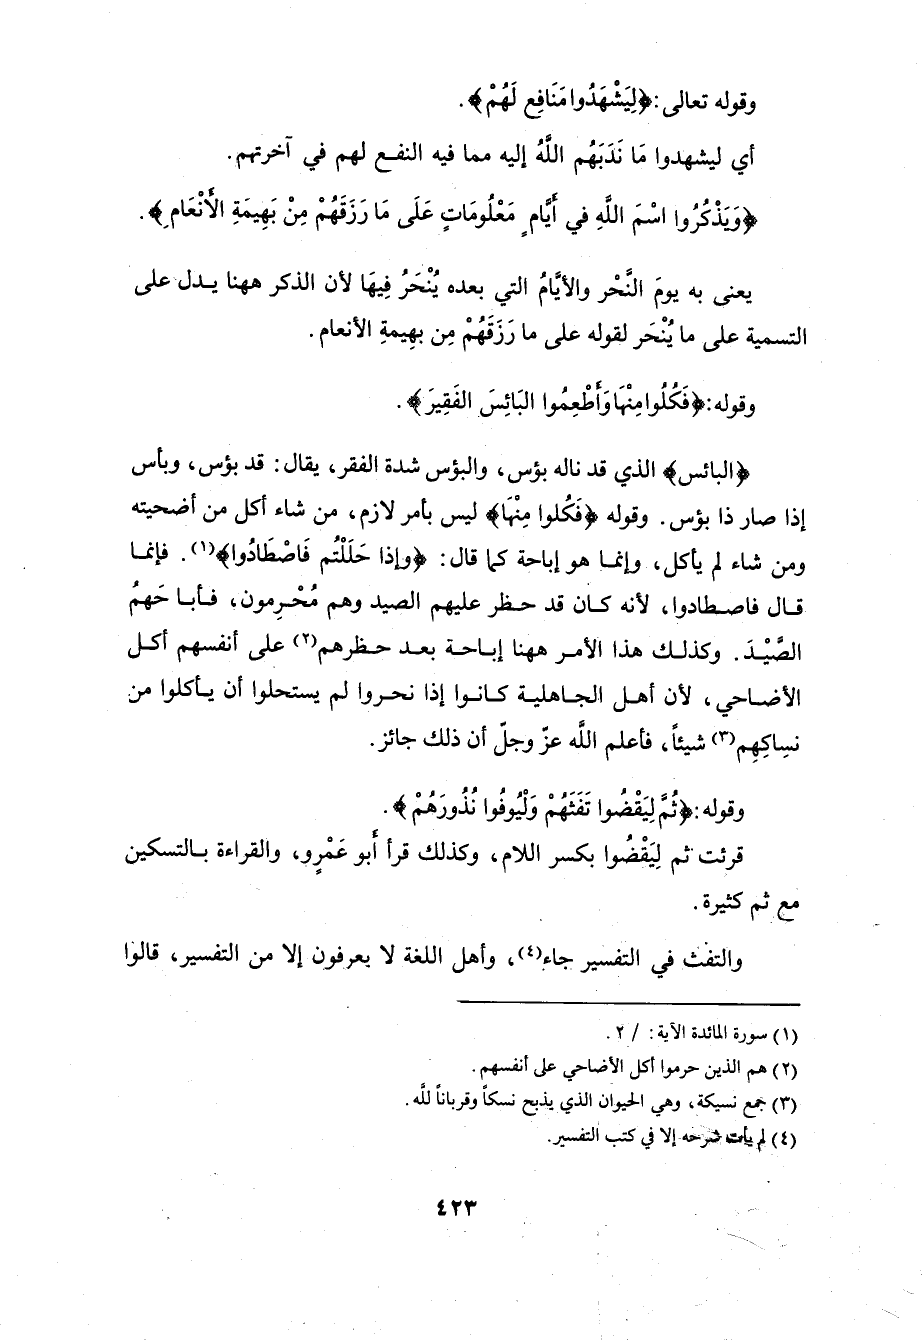 وقوله تعالى: ﴿لِيَشْهَدُوا مَنَافِع لَهُمْ﴾.
أي ليشهدوا مَا نَدَبَهُم اللَّهُ إليه مما فيه النفع لهم في آخرتهم.
﴿وَيَذْكُرُوا اسْمَ اللَّهِ في أَيَّامٍ مَعْلُومَاتٍ عَلَى مَا رَزَقَهُمْ مِنْ بَهِيمَةِ الأَنْعَامِ﴾.
يعنى به يومَ النَّحْر والأيَّامُ التي بعده يُنْحَرُ فِيهَا لأن الذكر ههنا يدل على
التسمية على ما يُنْحَر لقوله على ما رَزَقَهُمْ مِن بهِيمةِ الأنعام.
وقوله: ﴿فَكُلُوا مِنْهَا وَأَطْعِمُوا البَائِسَ الفَقِيرَ﴾.
﴿البائس﴾ الذي قد ناله بؤس، والبؤس شدة الفقر، يقال: قد بؤس، وبأس
إذا صار ذا بؤس. وقوله ﴿فَكُلوا مِنْهَا﴾ ليس بأمر لازم، من شاء أكل من أضحيته
ومن شاء لم يأكل، وإنما هو إباحة كما قال: ﴿وإذا حَلَلْتُم فَاصْطَادُوا﴾(١). فإنما
قال فاصطادوا، لأنه كان قد حظر عليهم الصيد وهم مُحْرِمون، فأباحَهمُ
الصَّيْدَ. وكذلك هذا الأمر ههنا إباحة بعد حظرهم(٢) على أنفسهم أكل
الأضاحي، لأن أهل الجاهلية كانوا إذا نحروا لم يستحلوا أن يأكلوا من
نسائِكِهِم(٣) شيئاً، فأعلم اللَّه عزّ وجلّ أن ذلك جائز.
وقوله: ﴿ثُمَّ لِيَقْضُوا تَفَثَهُمْ وَلْيُوفُوا نُذُورَهُمْ﴾.
قرئت ثم لِيَقْضُوا بكسر اللام، وكذلك قرأ أَبو عَمْرٍو، والقراءة بالتسكين
مع ثم كثيرة.
والتفث في التفسير جاء(٤)، وأهل اللغة لا يعرفون إلا من التفسير، قالوا
(١) سورة المائدة الآية: / ٢.
(٢) هم الذين حرموا أكل الأضاحي على أنفسهم.
(٣) جمع نسيكة، وهي الحيوان الذي يذبح نسكاً وقرباناً للَّه.
(٤) لم يأت شرحه إلا في كتب التفسير.
٤٢٣